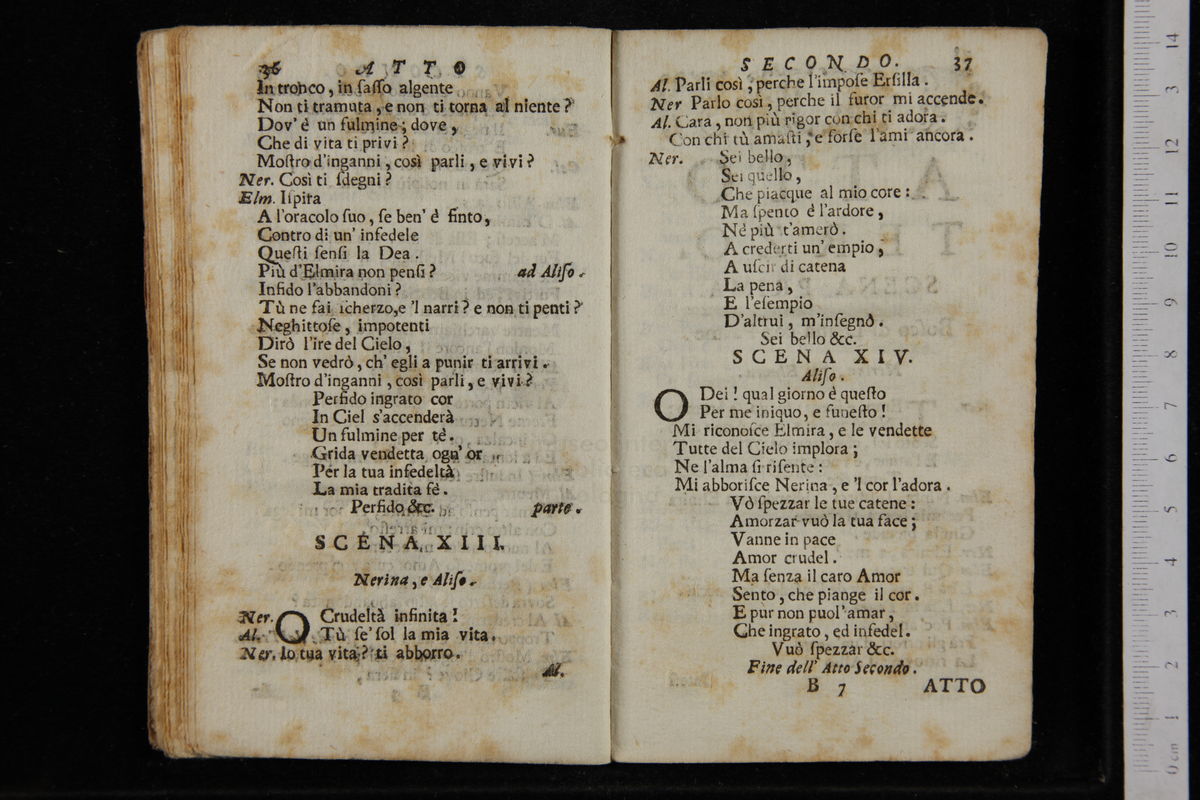 36 ATTO
In tronco, in ſaſſo algente
Non ti tramuta, e non ti torna al niente?
Dov' è un fulmine; dove,
Che di vita ti privi?
Moſtro d'inganni, così parli, e vivi?
Ner. Così ti ſdegni?
Elm. Iſpira
A l'oracolo ſuo, ſe ben' è finto,
Contro di un' infedele
Queſti ſenſi la Dea.
Più d'Elmira non penſi? ad Aliſo.
Infido l'abbandoni?
Tù ne fai ſcherzo, e 'l narri? e non ti penti?
Neghittoſe, impotenti
Dirò l'ire del Cielo,
Se non vedrò, ch' egli a punir ti arrivi.
Moſtro d'inganni, così parli, e vivi?
Perfido ingrato cor
In Ciel s'accenderà
Un fulmine per tè.
Grida vendetta ogn' or
Per la tua infedeltà
La mia tradita fè.
Perfido &c. parte.
SCENA XIII.
Nerina, e Aliſo.
Ner. O Crudeltà infinita!
Al. Tù ſe' ſol la mia vita.
Ner. Io tua vita? ti abborro.
Al.
SECONDO. 37
Al. Parli così, perche l'impoſe Erſilla.
Ner Parlo così, perche il furor mi accende.
Al. Cara, non più rigor con chi ti adora.
Con chi tù amaſti, e forſe l'ami ancora.
Ner. Sei bello,
Sei quello,
Che piacque al mio core:
Ma ſpento è l'ardore,
Nè più t'amerò.
A crederti un' empio,
A uſcir di catena
La pena,
E l'eſempio
D'altrui, m'inſegnò.
Sei bello &c.
SCENA XIV.
Aliſo.
O Dei! qual giorno è queſto
Per me iniquo, e funeſto!
Mi riconoſce Elmira, e le vendette
Tutte del Cielo implora;
Ne l'alma ſi riſente:
Mi abboriſce Nerina, e 'l cor l'adora.
Vò ſpezzar le tue catene:
Amorzar vuò la tua face;
Vanne in pace
Amor crudel.
Ma ſenza il caro Amor
Sento, che piange il cor.
E pur non puol' amar,
Che ingrato, ed infedel.
Vuò ſpezzar &c.
Fine dell' Atto Secondo.
B 7 ATTO